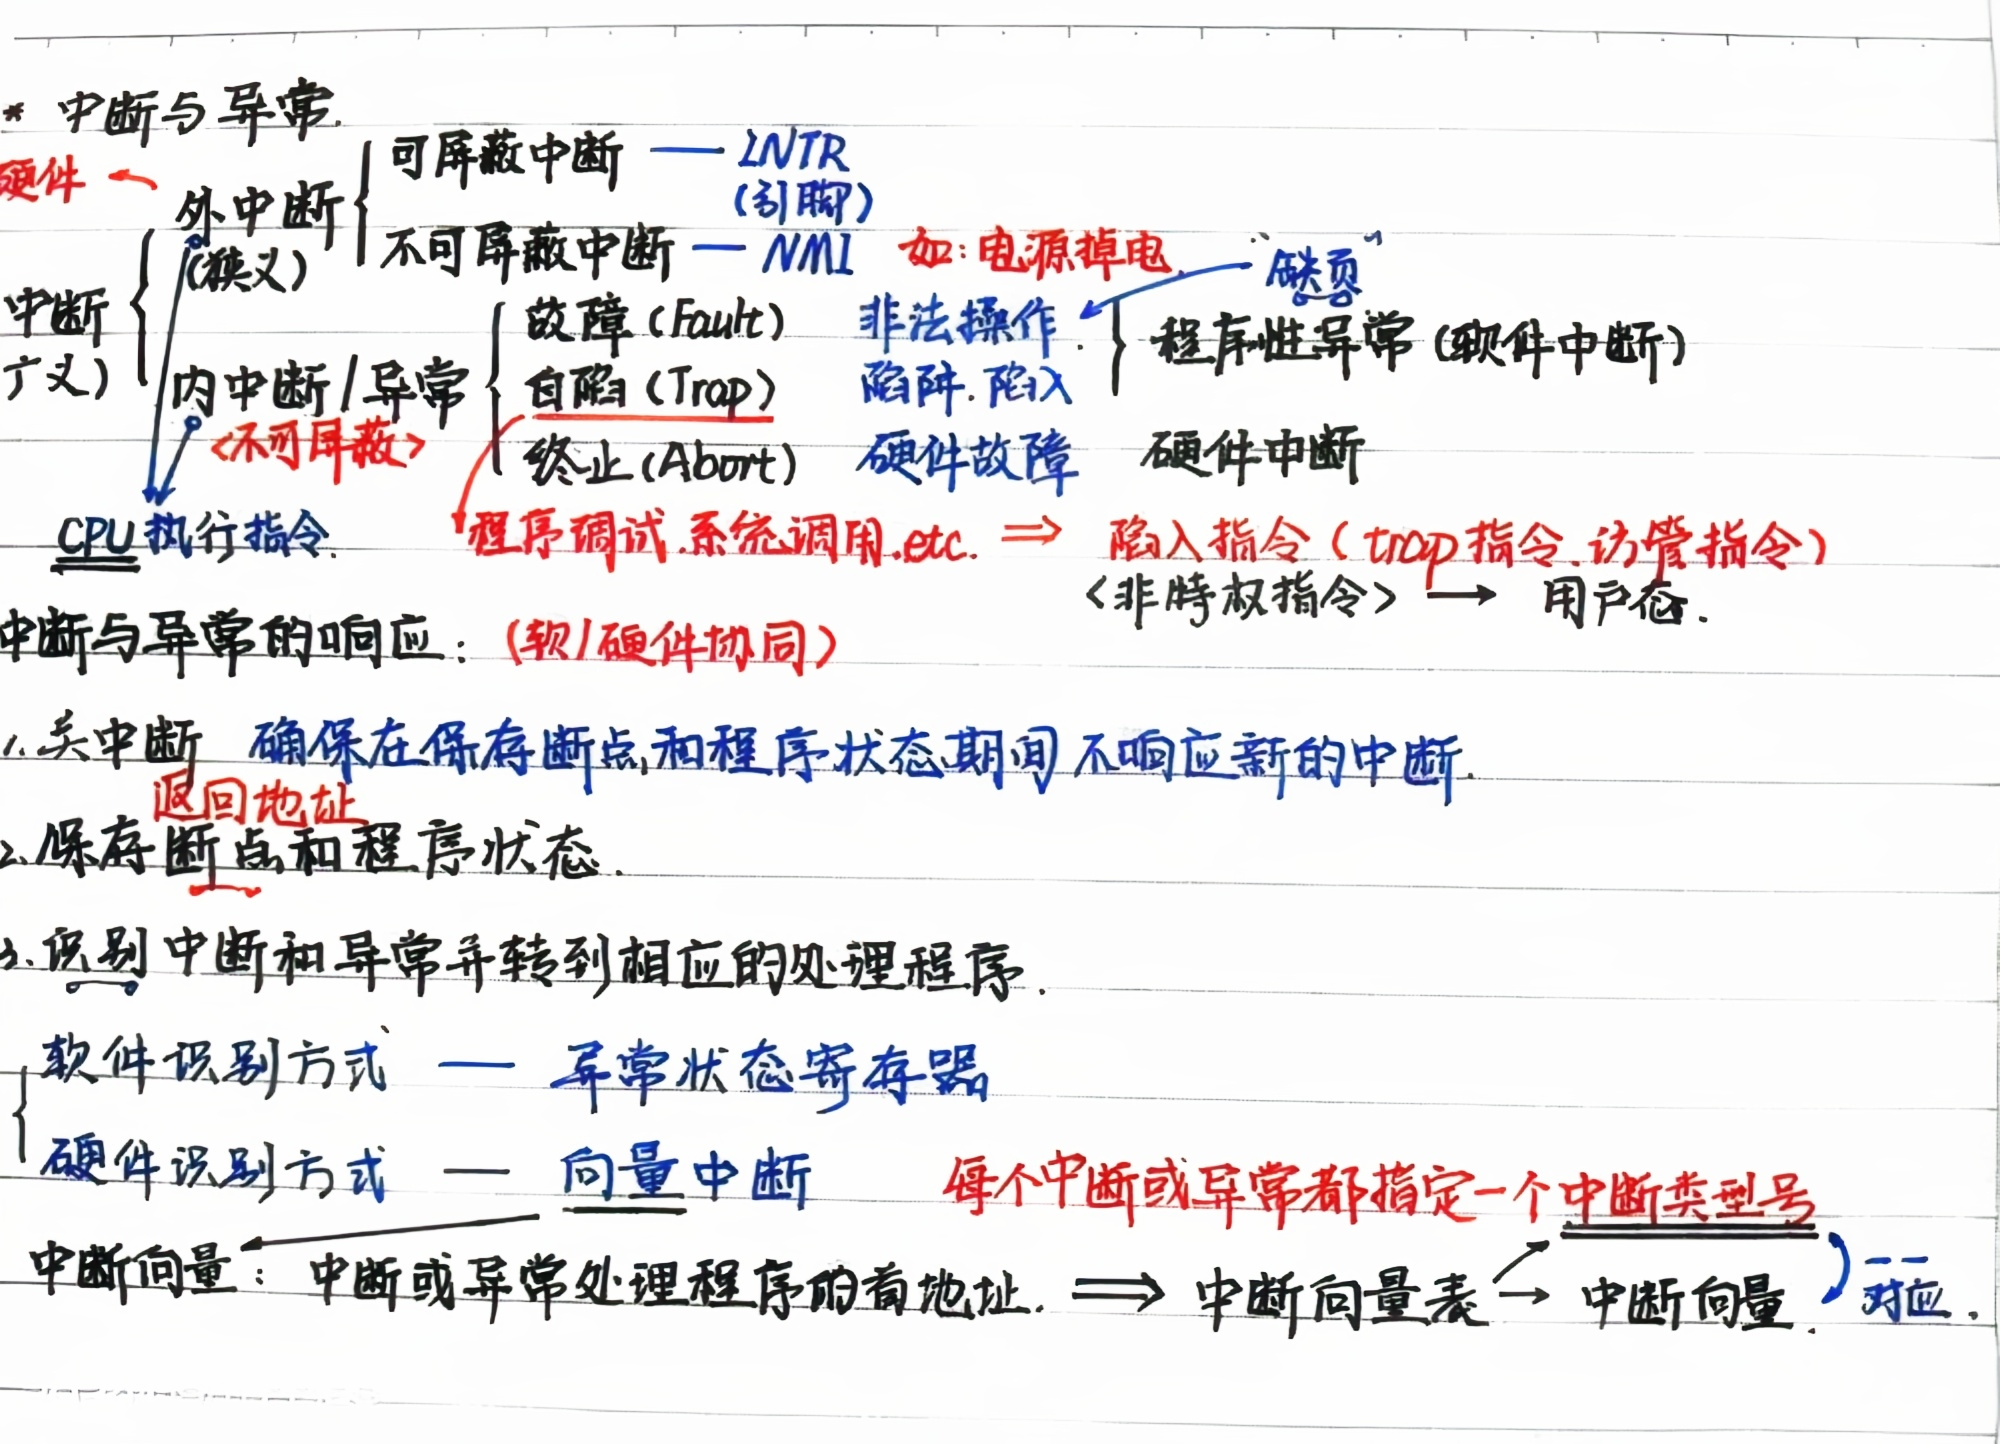 * 中断与异常.
可屏蔽中断 — INTR
硬件 ← 外中断 (引脚)
(狭义) 不可屏蔽中断 — NMI 如:电源掉电. "缺页"
中断 故障(Fault) 非法操作. 程序性异常(软件中断)
广义) 内中断/异常 自陷(Trap) 陷阱.陷入
<不可屏蔽> 终止(Abort) 硬件故障 硬件中断
CPU执行指令. 程序调试.系统调用.etc. ⇒ 陷入指令(trap指令.访管指令)
<非特权指令> → 用户态.
中断与异常的响应: (软/硬件协同)
1.关中断 确保在保存断点和程序状态期间不响应新的中断.
返回地址
2.保存断点和程序状态.
3.识别中断和异常并转到相应的处理程序.
软件识别方式 — 异常状态寄存器
硬件识别方式 — 向量中断 每个中断或异常都指定一个中断类型号
中断向量: 中断或异常处理程序的首地址. ⇒ 中断向量表 → 中断向量. 一一对应.